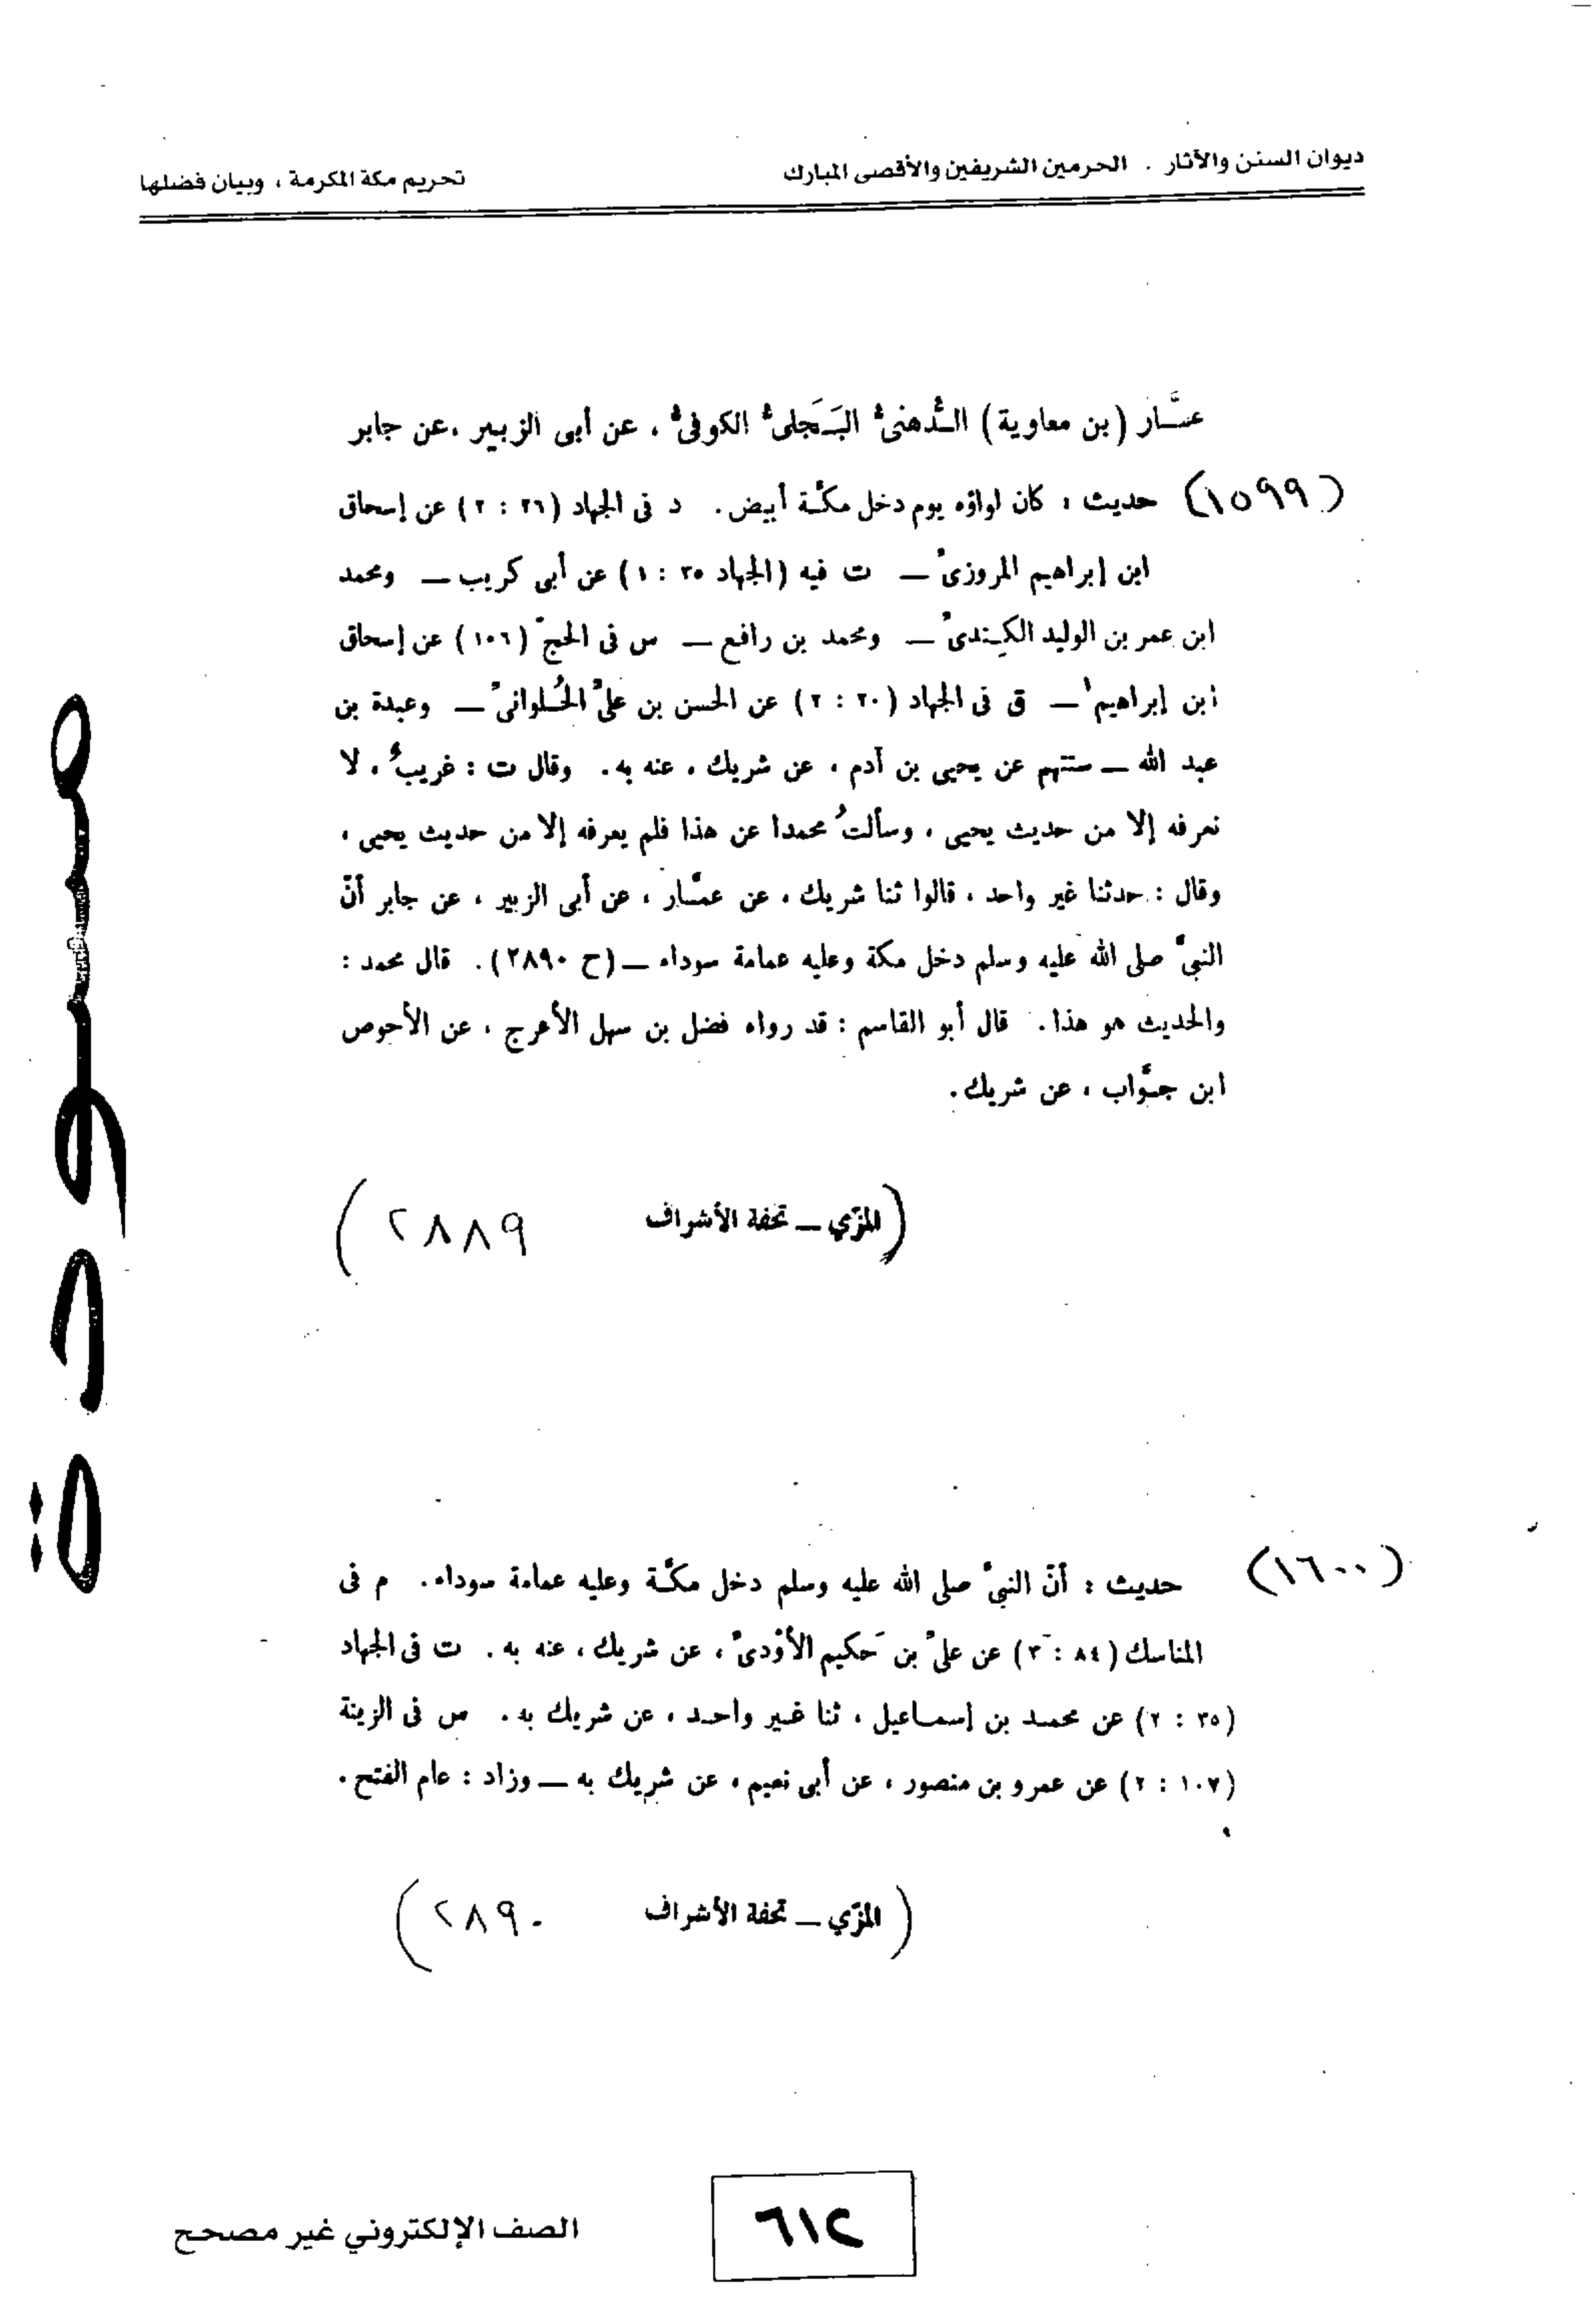 ديوان السنن والآثار . الحرمين الشريفين والأقصى المبارك
تحريم مكة المكرمة ، وبيان فضلها
عمَّار (بن معاوية) الدُّهنىّ البَجَلىّ الكوفىّ ، عن أبى الزبير ، عن جابر
(١٥٩٩) حديث : كان لواؤه يوم دخل مكّة أبيض . د فى الجهاد (٢٦ : ٢) عن إسحاق
ابن إبراهيم المروزىّ — ت فيه (الجهاد ٣٥ : ١) عن أبى كريب — ومحمد
ابن عمر بن الوليد الكِندىّ — ومحمد بن رافع — س فى الحجّ (١٠٦) عن إسحاق
ابن إبراهيم — ق فى الجهاد (٢٠ : ٢) عن الحسن بن علىّ الحُلوانىّ — وعبدة بن
عبد الله — ستتهم عن يحيى بن آدم ، عن شريك ، عنه به . وقال ت : غريبٌ ، لا
نعرفه إلا من حديث يحيى ، وسألتُ محمدا عن هذا فلم يعرفه إلا من حديث يحيى ،
وقال : حدثنا غير واحد ، قالوا ثنا شريك ، عن عمّار ، عن أبى الزبير ، عن جابر أنّ
النبىّ صلى الله عليه وسلم دخل مكة وعليه عمامة سوداء — (ح ٢٨٩٠) . قال محمد :
والحديث هو هذا . قال أبو القاسم : قد رواه فضل بن سهل الأعرج ، عن الأحوص
ابن جوّاب ، عن شريك .
(المزّي — تحفة الأشراف ٢٨٨٩)
(١٦٠٠) حديث : أنّ النبىّ صلى الله عليه وسلم دخل مكّة وعليه عمامة سوداء . م فى
المناسك (٨٤ : ٣) عن علىّ بن حَكيم الأوْدىّ ، عن شريك ، عنه به . ت فى الجهاد
(٣٥ : ٢) عن محمد بن إسماعيل ، ثنا غير واحد ، عن شريك به . س فى الزينة
(١٠٧ : ٢) عن عمرو بن منصور ، عن أبى نعيم ، عن شريك به — وزاد : عام الفتح .
(المزّي — تحفة الأشراف ٢٨٩٠)
مسودة
٦١٢
الصف الإلكتروني غير مصحح